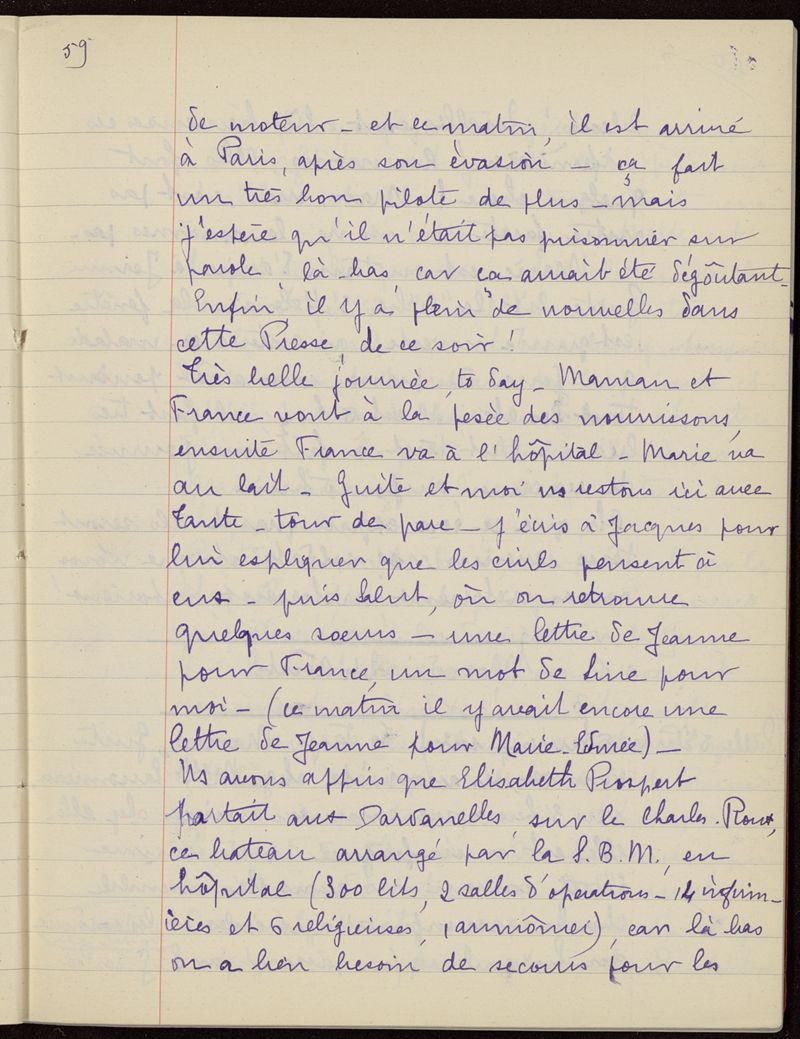 59
de moteur - et ce matin, il est arrivé
à Paris, après son évasion - ça fait
un très bon pilote de plus - mais
j'espère qu'il n'était pas prisonnier sur
parole là-bas car ça aurait été dégôutant -
Enfin il y a plein de nouvelles dans
cette Presse de ce soir !
Très belle journée to day - Maman et
France vont à la pesée des nourrissons,
ensuite France va à l'hôpital - Marie va
au lait - Guite et moi ns restons ici avec
Tante - tour de parc - j'écris à Jacques pour
lui espliquer que les civils pensent à
eux - puis Salut, où on retrouve
quelques soeurs - une lettre de Jeanne
pour France, un mot de Line pour
moi - (ce matin il y avait encore une
lettre de Jeanne pour Marie-Edmée) -
Ns avons appris que Elisabeth Prospert
partait aux Dardanelles sur le Charles-Roux,
ce bateau arrangé par la S.B.M. en
hôpital (300 lits, 2 salles d'opérations - 14 infirm-
ières et 6 religieuses, 1 aumônier), car là bas
on a bien besoin de secours pour les